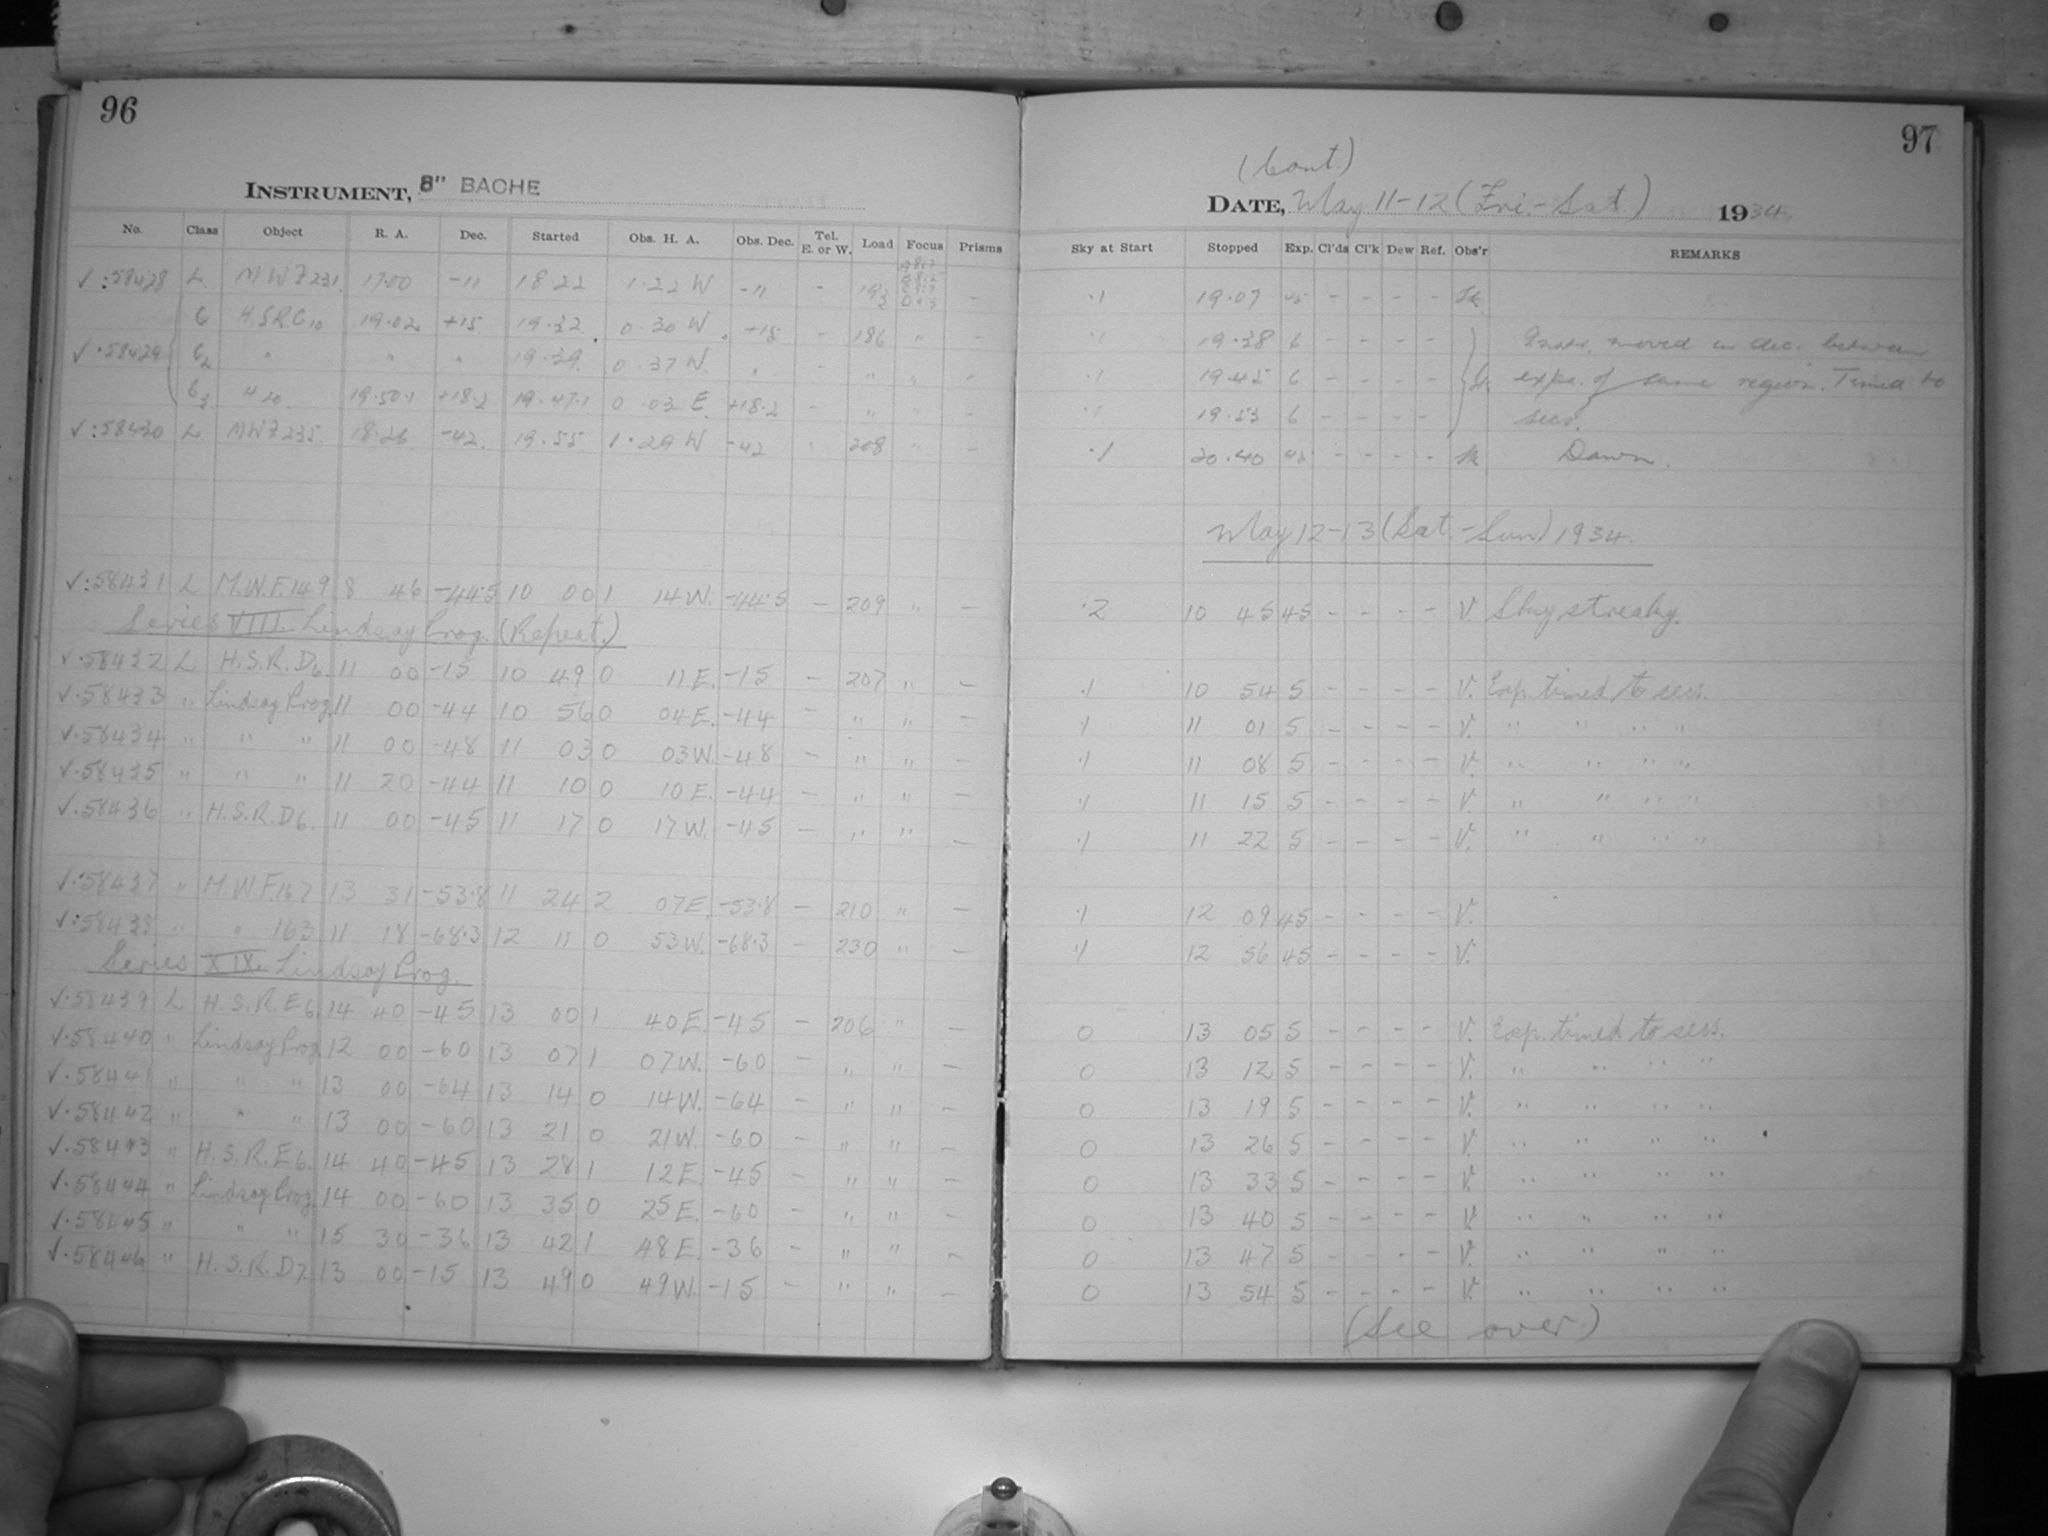 96
INSTRUMENT, 8" BACHE
No. Class Object R. A. Dec. Started Obs. H. A. Obs. Dec. Tel. E. or W. Load Focus Prisms
√:58428 L MWF231. 17.00 -11 18 22 1.22 W -11 - 193 -
C H.S.R.C10 19.02 +15 19.32 0.30 W +15 - 186 " -
√.58429 C2 " " " 19.39 0 37 W. " - " " -
C3 H20 19.50.1 +18.2 19.47.1 0 03 E +18.2 - " " -
√:58430 L MWF235 18.26 -42. 19.55 1.29 W -42 - 208 " -
√:58431 L M.W.F.149 8 46 -44.5 10 00 1 14W. -44.5 - 209 " -
Series VIII Lindsay Prog. (Repeat.)
√.58432 L H.S.R.D6. 11 00 -15 10 49 0 11E. -15 - 207 " -
√.58433 " Lindsay Prog. 11 00 -44 10 56 0 04E. -44 - " " -
√.58434 " " " 11 00 -48 11 03 0 03W. -48 - " " -
√.58435 " " " 11 20 -44 11 10 0 10E. -44 - " " -
√.58436 " H.S.R.D6. 11 00 -45 11 17 0 17W. -45 - " " -
√.58437 " M.W.F.167 13 31 -53.8 11 24 2 07E. -53.8 - 210 " -
√:58438 " " 163 11 18 -68.3 12 11 0 53W. -68.3 - 230 " -
Series XIX Lindsay Prog.
√.58439 L H.S.R.E6. 14 40 -45 13 00 1 40E. -45 - 206 " -
√.58440 " Lindsay Prog. 12 00 -60 13 07 1 07W. -60 - " " -
√.58441 " " " 13 00 -64 13 14 0 14W. -64 - " " -
√.58442 " " " 13 00 -60 13 21 0 21W. -60 - " " -
√.58443 " H.S.R.E6. 14 40 -45 13 28 1 12E. -45 - " " -
√.58444 " Lindsay Prog. 14 00 -60 13 35 0 25E. -60 - " " -
√.58445 " " " 15 30 -36 13 42 1 48E. -36 - " " -
√.58446 " H.S.R.D7. 13 00 -15 13 49 0 49W. -15 - " " -
97
(Cont.)
DATE, May 11-12 (Fri.-Sat.) 1934
Sky at Start Stopped Exp. Cl'ds Cl'k Dew Ref. Obs'r REMARKS
.1 19.07 45 - - - -
.1 19.38 6 - - - - moved in dec. between
.1 19.45 6 - - - - exps. of same region. Timed to
.1 19.53 6 - - - - secs.
.1 20.40 45 - - - - Dawn.
May 12-13 (Sat.-Sun) 1934.
.2 10 45 45 - - - - V. Sky streaky.
.1 10 54 5 - - - - V. Exp. timed to secs.
.1 11 01 5 - - - - V. " " " "
.1 11 08 5 - - - - V. " " " "
.1 11 15 5 - - - - V. " " " "
.1 11 22 5 - - - - V. " " " "
.1 12 09 45 - - - - V.
.1 12 56 45 - - - - V.
0 13 05 5 - - - - V. Exp. timed to secs.
0 13 12 5 - - - - V. " " " "
0 13 19 5 - - - - V. " " " "
0 13 26 5 - - - - V. " " " "
0 13 33 5 - - - - V. " " " "
0 13 40 5 - - - - V. " " " "
0 13 47 5 - - - - V. " " " "
0 13 54 5 - - - - V. " " " "
(See over)